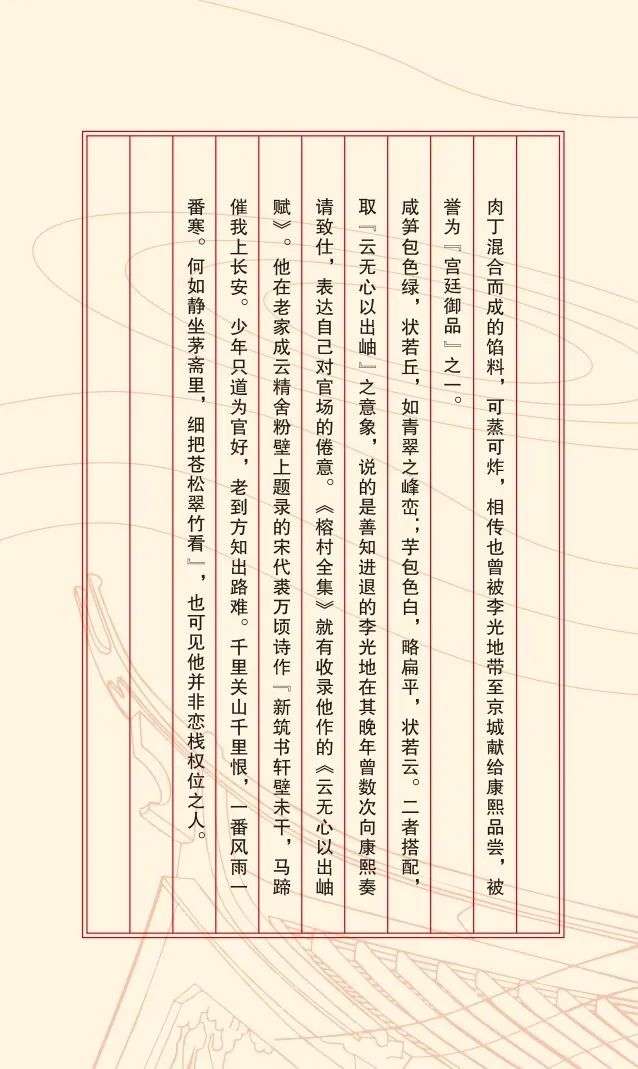 肉丁混合而成的馅料，可蒸可炸，相传也曾被李光地带至京城献给康熙品尝，被
誉为『宫廷御品』之一。
咸笋包色绿，状若丘，如青翠之峰峦；芋包色白，略扁平，状若云。二者搭配，
取『云无心以出岫』之意象，说的是善知进退的李光地在其晚年曾数次向康熙奏
请致仕，表达自己对官场的倦意。《榕村全集》就有收录他作的《云无心以出岫
赋》。他在老家成云精舍粉壁上题录的宋代裘万顷诗作『新筑书轩壁未干，马蹄
催我上长安。少年只道为官好，老到方知出路难。千里关山千里恨，一番风雨一
番寒。何如静坐茅斋里，细把苍松翠竹看』，也可见他并非恋栈权位之人。